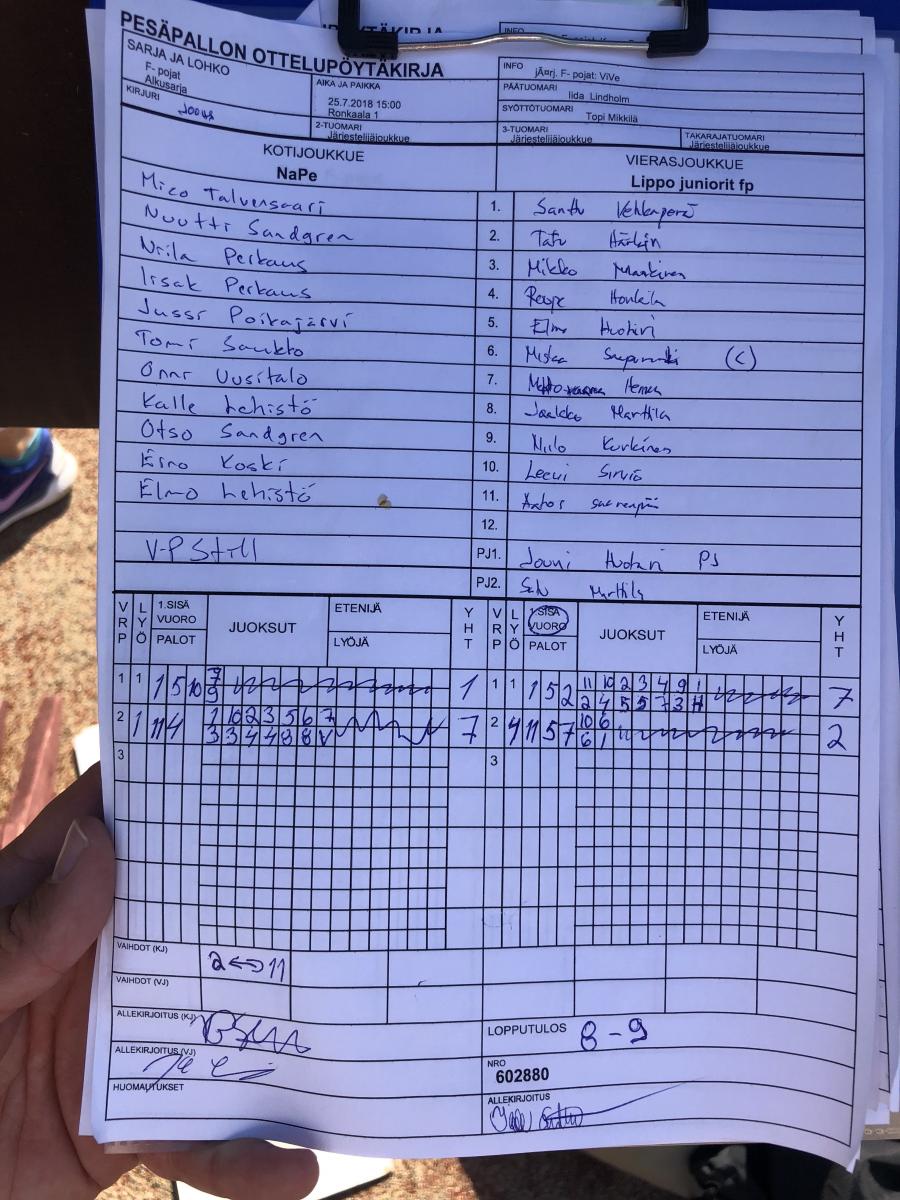 PESÄPALLON OTTELUPÖYTÄKIRJA
SARJA JA LOHKO
F- pojat
Alkusarja
KIRJURI
AIKA JA PAIKKA
25.7.2018 15:00
Ronkaala 1
2-TUOMARI
Järjestelijäjoukkue
INFO
jÃ¤rj. F- pojat: ViVe
PÄÄTUOMARI
Iida Lindholm
SYÖTTÖTUOMARI
Topi Mikkilä
3-TUOMARI
Järjestelijäjoukkue
TAKARAJATUOMARI
Järjestelijäjoukkue
KOTIJOUKKUE
NaPe
VIERASJOUKKUE
Lippo juniorit fp
Mico Talvensaari 1. Santtu Vehkaperä
Nuutti Sandgren 2. Tatu Härkin
Niila Perkaus 3. Mikko Mankinen
Iisak Perkaus 4. Roope Honkila
Jussi Poikajärvi 5. Elmo Huotari
Tomi Saukko 6. (C)
Onni Uusitalo 7.
Kalle Lehistö 8. Jaakko Marttila
Otso Sandgren 9. Niilo Kurkinen
Eino Koski 10. Leevi Sirviö
Elmo Lehistö 11. Aatos
12.
V-P Still PJ1. Jouni Huotari PJ
PJ2. Marttila
VRP LYÖ 1.SISÄ VUORO PALOT JUOKSUT ETENIJÄ LYÖJÄ YHT VRP LYÖ 1.SISÄ VUORO PALOT JUOKSUT ETENIJÄ LYÖJÄ YHT
1 1 1 5 10 7 1 1 1 1 5 2 11 10 2 3 4 9 1 7
9 2 4 5 5 7 3 H
2 1 11 4 1 10 2 3 5 6 7 7 2 9 11 5 7 10 6 2
3 3 4 4 8 8 V 6 1
3 3
VAIHDOT (KJ) 2 ↔ 11
VAIHDOT (VJ)
ALLEKIRJOITUS (KJ)
ALLEKIRJOITUS (VJ)
HUOMAUTUKSET
LOPPUTULOS 8 - 9
NRO
602880
ALLEKIRJOITUS